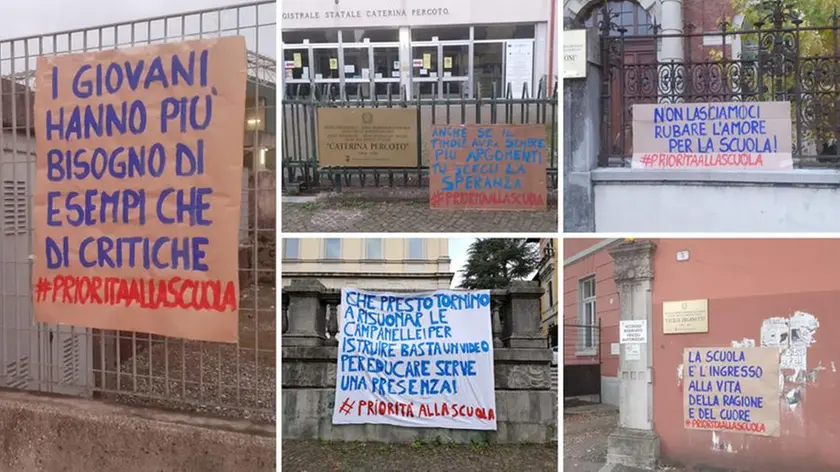 I GIOVANI
HANNO PIU'
BISOGNO DI
ESEMPI CHE
DI CRITICHE
#PRIORITAALLASCUOLA
GISTRALE STATALE CATERINA PERCOTO.
"CATERINA PERCOTO"
ANCHE SE IL
TIMORE AVRÀ SEMPRE
PIÙ ARGOMENTI
TU SCEGLI LA
SPERANZA
#PRIORITAALLASCUOLA
NON LASCIAMOCI
RUBARE L'AMORE
PER LA SCUOLA!
#PRIORITAALLASCUOLA
CHE PRESTO TORNINO
A RISUONAR LE
CAMPANELLE! PER
ISTRUIRE BASTA UN VIDEO
PER EDUCARE SERVE
UNA PRESENZA!
# PRIORITÀ ALLA SCUOLA
LA SCUOLA
E' L'INGRESSO
ALLA VITA
DELLA RAGIONE
E DEL CUORE
#PRIORITAALLASCUOLA